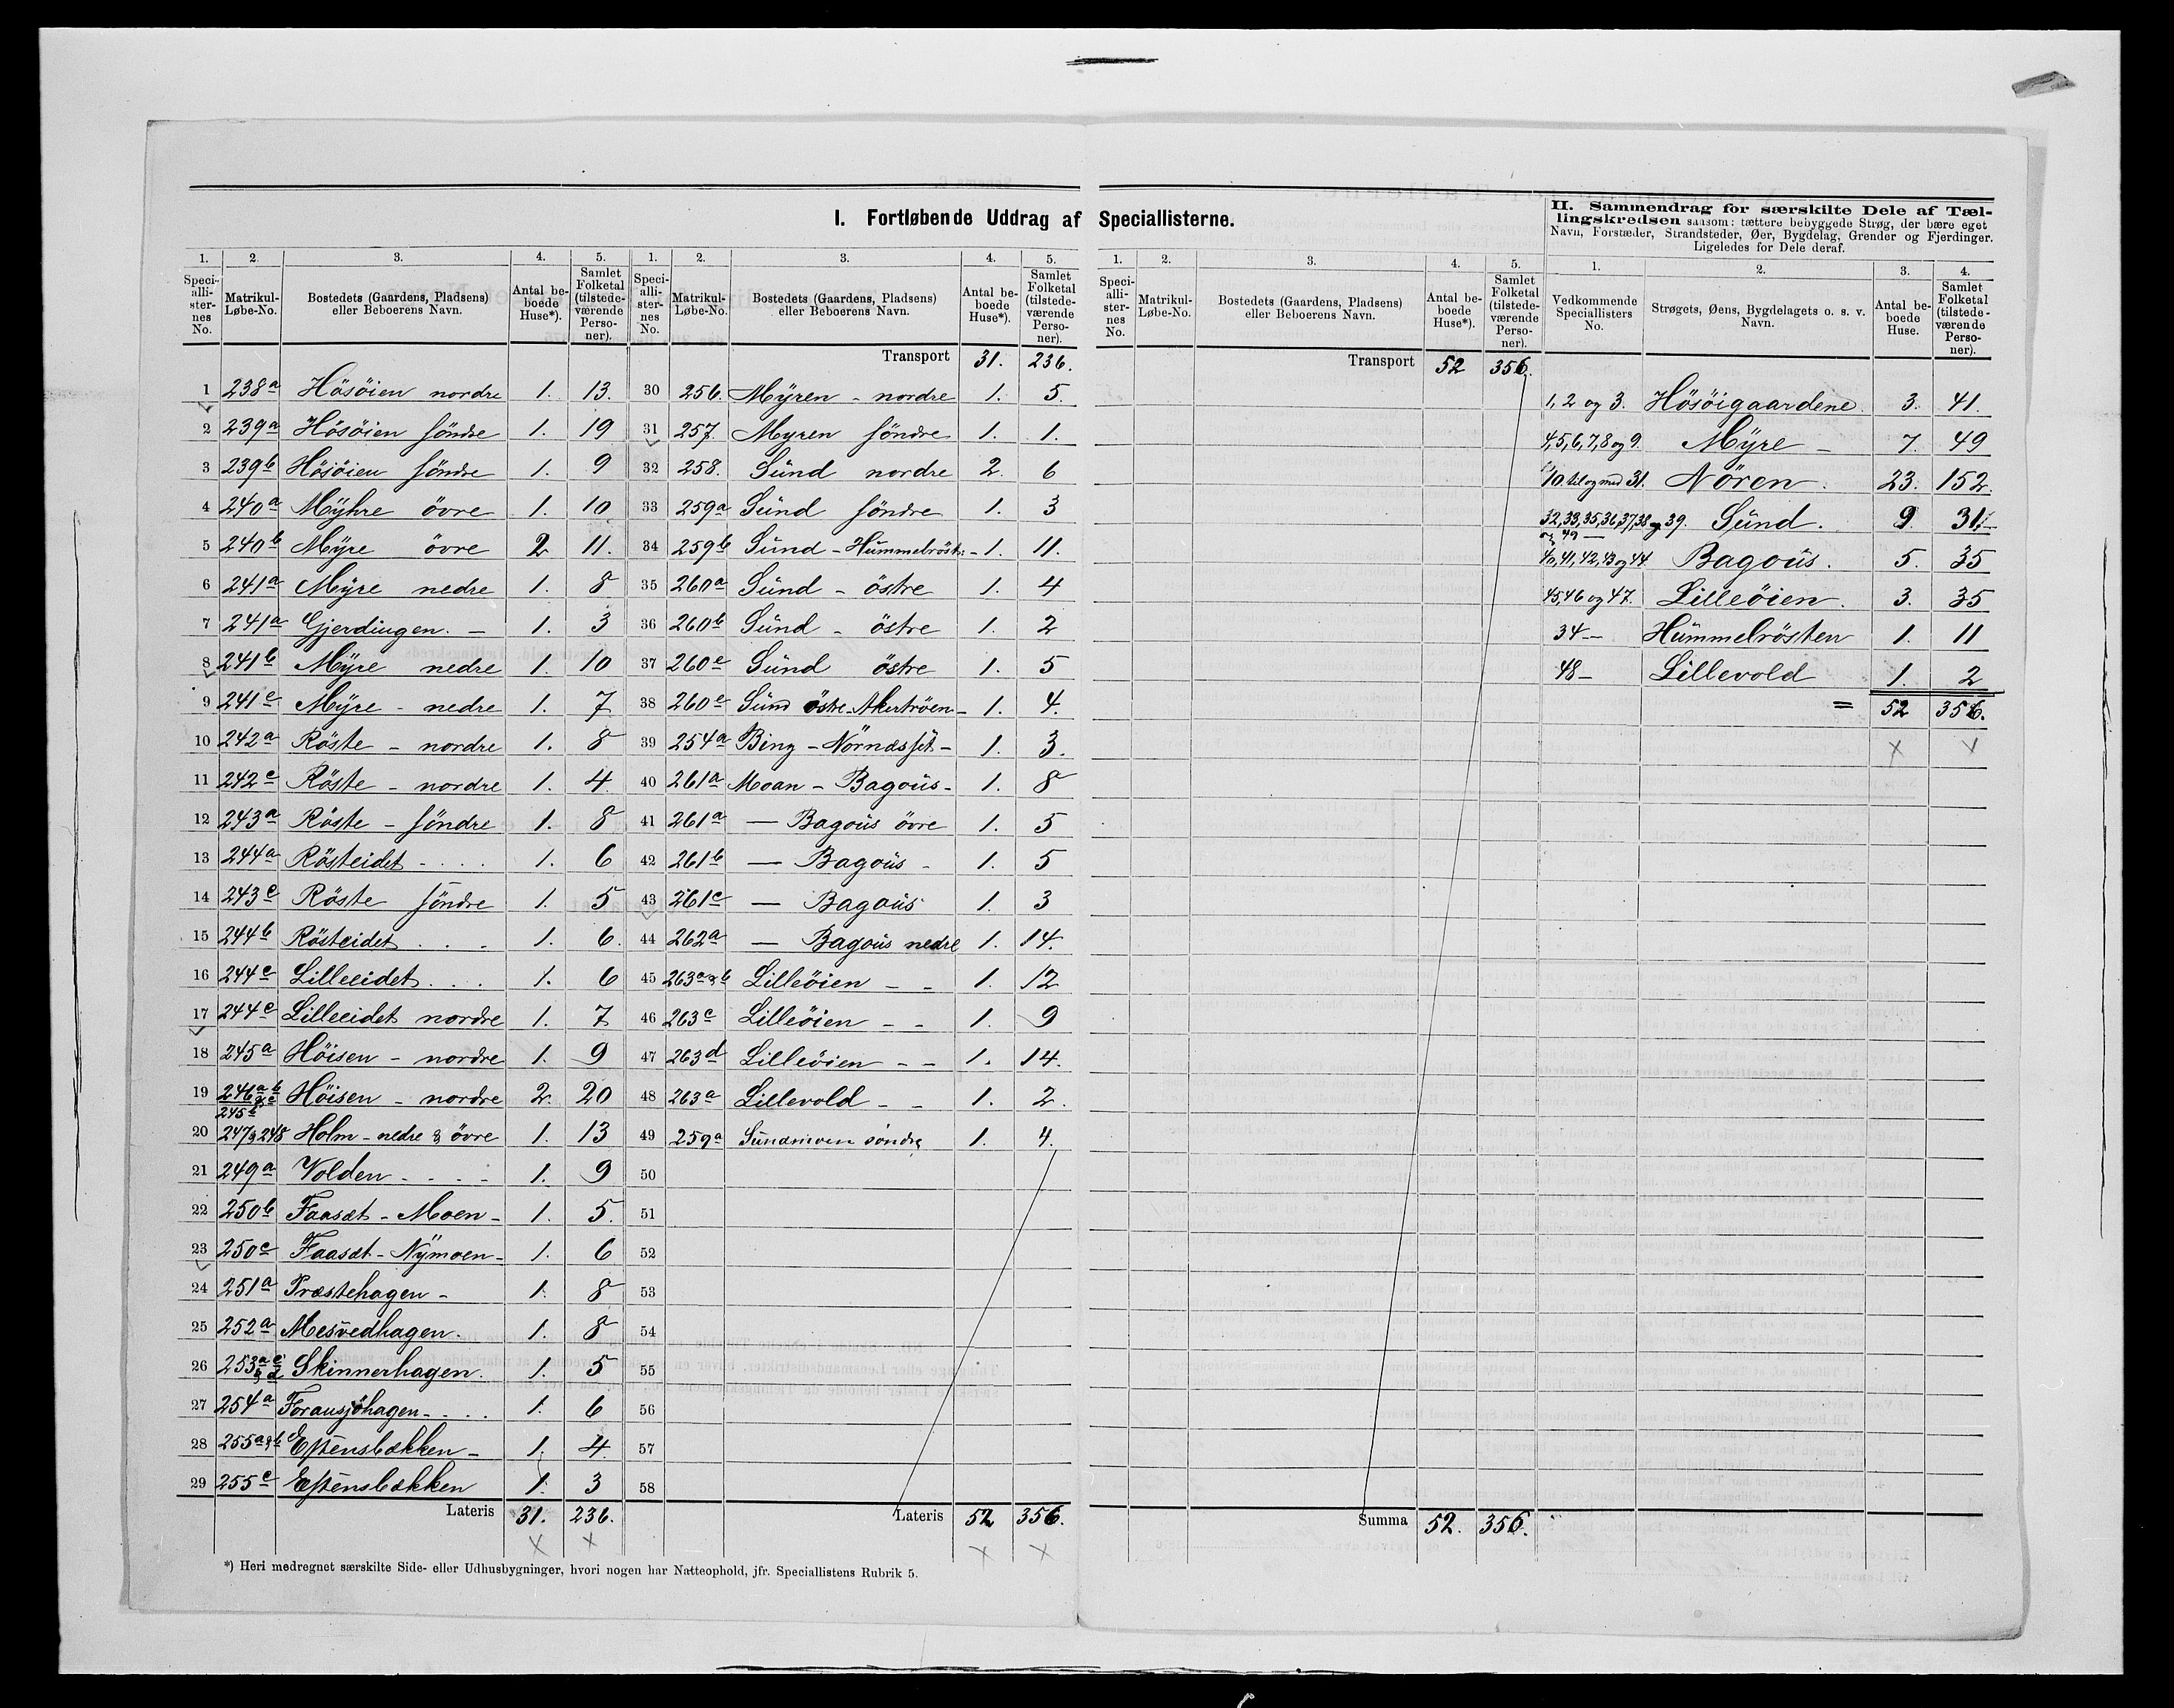 I. Fortløbende Uddrag af Speciallisterne.
II. Sammendrag for særskilte Dele af Tæl-
lingskredsen saasom: tættere bebyggede Strøg, der bære eget
Navn, Forstæder, Strandsteder, Øer, Bygdelag, Grender og Fjerdinger.
Ligeledes for Dele deraf.
1. 2. 3. 4. 5.
Speci-alli-ster-nes No. Matrikul-Løbe-No. Bostedets (Gaardens, Pladsens) eller Beboerens Navn. Antal be-boede Huse*). Samlet Folketal (tilstede-værende Perso-ner).
1 238a Hösöien nordre 1. 13.
2 239a Hösöien söndre 1. 19
3 239b Hösöien söndre 1. 9
4 240a Myhre övre 1. 10
5 240b Myre övre 2 11.
6 241a Myre nedre 1. 8
7 241a Gjerdingen. 1. 3
8 241b Myre nedre 1. 10
9 241c Myre - nedre 1. 7
10 242a Röste - nordre 1. 8
11 242c Röste - nordre 1. 4
12 243a Röste - söndre 1. 8
13 244a Rösteidet 1. 6
14 243c Röste söndre 1. 5
15 244b Rösteidet 1. 6.
16 244c Lilleeidet 1. 6
17 244c Lilleeidet nordre 1. 7
18 245a Höisen - nordre 1. 9
19 246a b & c 245b Höisen - nordre 2. 20
20 247&248 Holm - nedre & övre 1. 13
21 249a Volden 1. 9
22 250b Faasæt - Moen - 1. 5.
23 250c Faasæt - Nymoen - 1. 6
24 251a Præstehagen - 1. 8
25 252a Mesvedhagen. 1. 8
26 253a c & d Skinnerhagen. 1. 5
27 254a Foransjöhagen 1. 6
28 255a&b Estensbækken - 1. 4
29 255c Estensbækken 1. 3
Lateris 31. 236.
1. 2. 3. 4. 5.
Speci-alli-ster-nes No. Matrikul-Løbe-No. Bostedets (Gaardens, Pladsens) eller Beboerens Navn. Antal be-boede Huse*). Samlet Folketal (tilstede-værende Perso-ner).
Transport 31. 236.
30 256. Myren - nordre 1. 5.
31 257. Myren söndre 1. 1.
32 258. Sund nordre 2. 6
33 259a Sund söndre 1. 3
34 259b Sund - Hummelröst: - 1. 11.
35 260a Sund - östre 1. 4
36 260b Sund - östre 1. 2
37 260c Sund östre 1. 5
38 260e Sund östre - Akertröen - 1. 4.
39 254a Bing - Nörnæsset - 1. 3.
40 261a Moan - Bagous - 1. 8
41 261a — Bagous övre 1. 5
42 261b — Bagous - 1. 5
43 261c — Bagous 1. 3
44 262a — Bagous nedre 1. 14.
45 263a&b Lilleöien - - 1. 12
46 263c Lilleöien - - 1. 9
47 263d Lilleöien - - 1. 14.
48 263a Lillevold - - 1. 2.
49 259a Sundmoen söndre 1. 4.
50
51
52
53
54
55
56
57
58
Lateris 52 356.
*) Heri medregnet særskilte Side- eller Udhusbygninger, hvori nogen har Natteophold, jfr. Speciallistens Rubrik 5.
1. 2. 3. 4. 5.
Speci-alli-ster-nes No. Matrikul-Løbe-No. Bostedets (Gaardens, Pladsens) eller Beboerens Navn. Antal be-boede Huse*). Samlet Folketal (tilstede-værende Perso-ner).
Transport 52 356.
Summa 52. 356.
1. 2. 3. 4.
Vedkommende Speciallisters No. Strøgets, Øens, Bygdelagets o. s. v. Navn. Antal be-boede Huse. Samlet Folketal (tilstede-værende Perso-ner).
1, 2 og 3. Hösöigaardene. 3. 41.
4,5,6,7,8 og 9. Myre - 7. 49
10 til og med 31. Nören. 23. 152.
32,33,35,36,37,38 og 39. og 49 — Sund. 9. 31.
40,41,42,43 og 44. Bagous. 5. 35
45,46 og 47. Lilleöien. 3. 35
34 — Hummelrösten 1. 11
48 — Lillevold 1. 2
= 52 356.